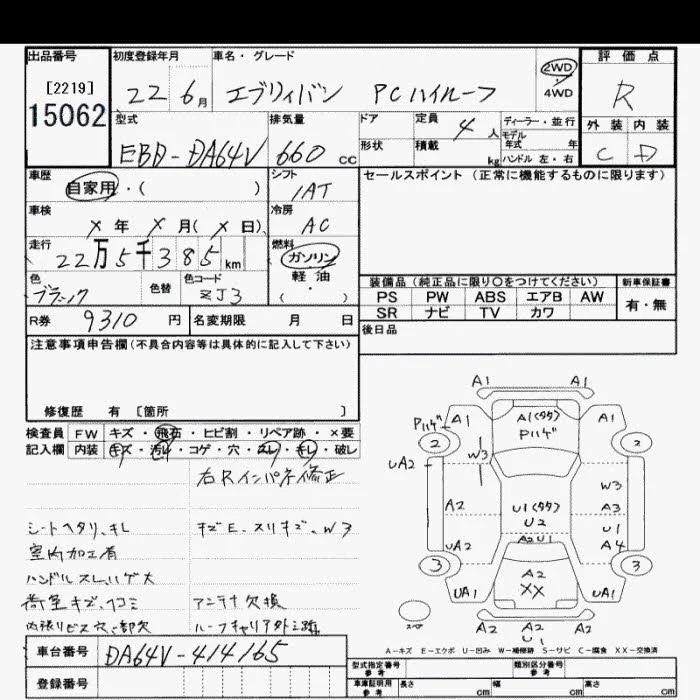 出品番号 初度登録年月 車名・グレード 評価点
[2219] 15062 22 6月 エブリィバン PCハイルーフ 2WD 4WD R
型式 排気量 ドア 定員 4人 ディーラー・並行 外装 内装
EBD-DA64V 660cc 形状 積載 kg モデル年式 年 ハンドル 左・右 C D
車歴 シフト セールスポイント (正常に機能するものに限ります)
自家用・( ) IAT
車検 冷房
X年 X月(X日) AC
走行 燃料
22万5千385km ガソリン
色 色替 色コード 軽油 装備品(純正品に限り○をつけてください) 新車保証書
ブラック ZJ3 (・) PS PW ABS エアB AW 有・無
SR ナビ TV カワ
R券 9310円 名変期限 月 日 後日品
注意事項申告欄(不具合内容等は具体的に記入して下さい)
修復歴 有 [箇所 ]
検査員 FW キズ・飛石・ヒビ割・リペア跡・×要
記入欄 内装 キズ・汚レ・コゲ・穴・スレ・キレ・破レ
右Rインパネ修正
シートヘタリ、キレ キズE、スリキズ、W3
室内加工有
ハンドルスレ、ハゲ大
荷室キズ、凹ミ アンテナ欠損
内張リビス穴、一部欠 ルーフキャリア外シ跡
A1 A1
Pハゲ A1 A1(タタ) A1
Pハゲ
2 2
UA2 W3 W3
A2 U1(タタ) A3
U2 U1
UA2 A2 U1 A4
3 A2 3
UA1 XX UA1
スペア A2 A2 A2
U1
A-キズ E-エクボ U-凹み W-補修跡 S-サビ C-腐食 XX-交換済
車台番号 DA64V-414165 型式指定番号 参考 類別区分番号 参考
登録番号 車庫証明用 参考 長さ cm 幅 cm 高さ cm